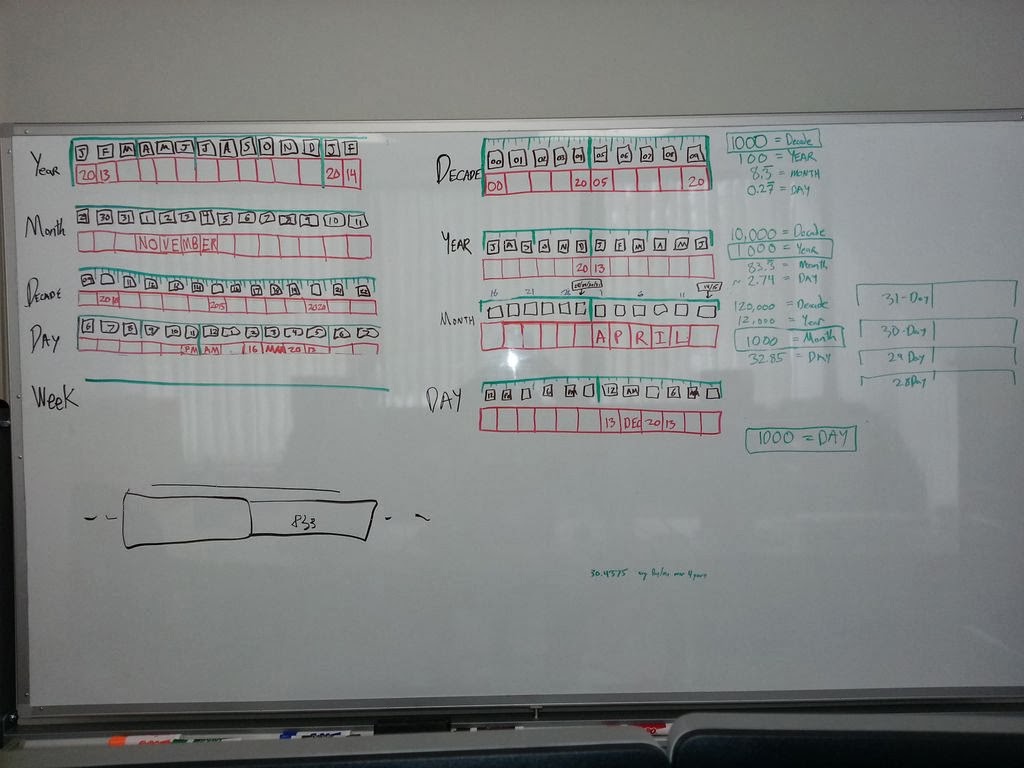 Year
J F M A M J J A S O N D J F
20 13 20 14
Month
29 30 31 1 2 3 4 5 6 7 8 9 10 11
NOVEMBER
DECADE
09 11 12
2010 2015 2020
DAY
6 7 8 9 10 11 12 1 2 3 4 5 6 7
PM AM 16 MAR 20 13
Week
833
DECADE
00 01 02 03 04 05 06 07 08 09
00 20 05 20
YEAR
J A S O N D J F M A M J
20 13
MONTH
16 21 26 6 11
APRIL
DAY
12 AM
13 DEC 20 13
1000 = Decade
100 = YEAR
8.3 = MONTH
0.27 = DAY
10,000 = Decade
1000 = Year
83.3 = Month
~ 2.74 = DAY
120,000 = Decade
12,000 = Year
1000 = Month
32.85 = DAY
1000 = DAY
31-Day
30-Day
29 Day
28 Day
30.4375 avg over 4 years